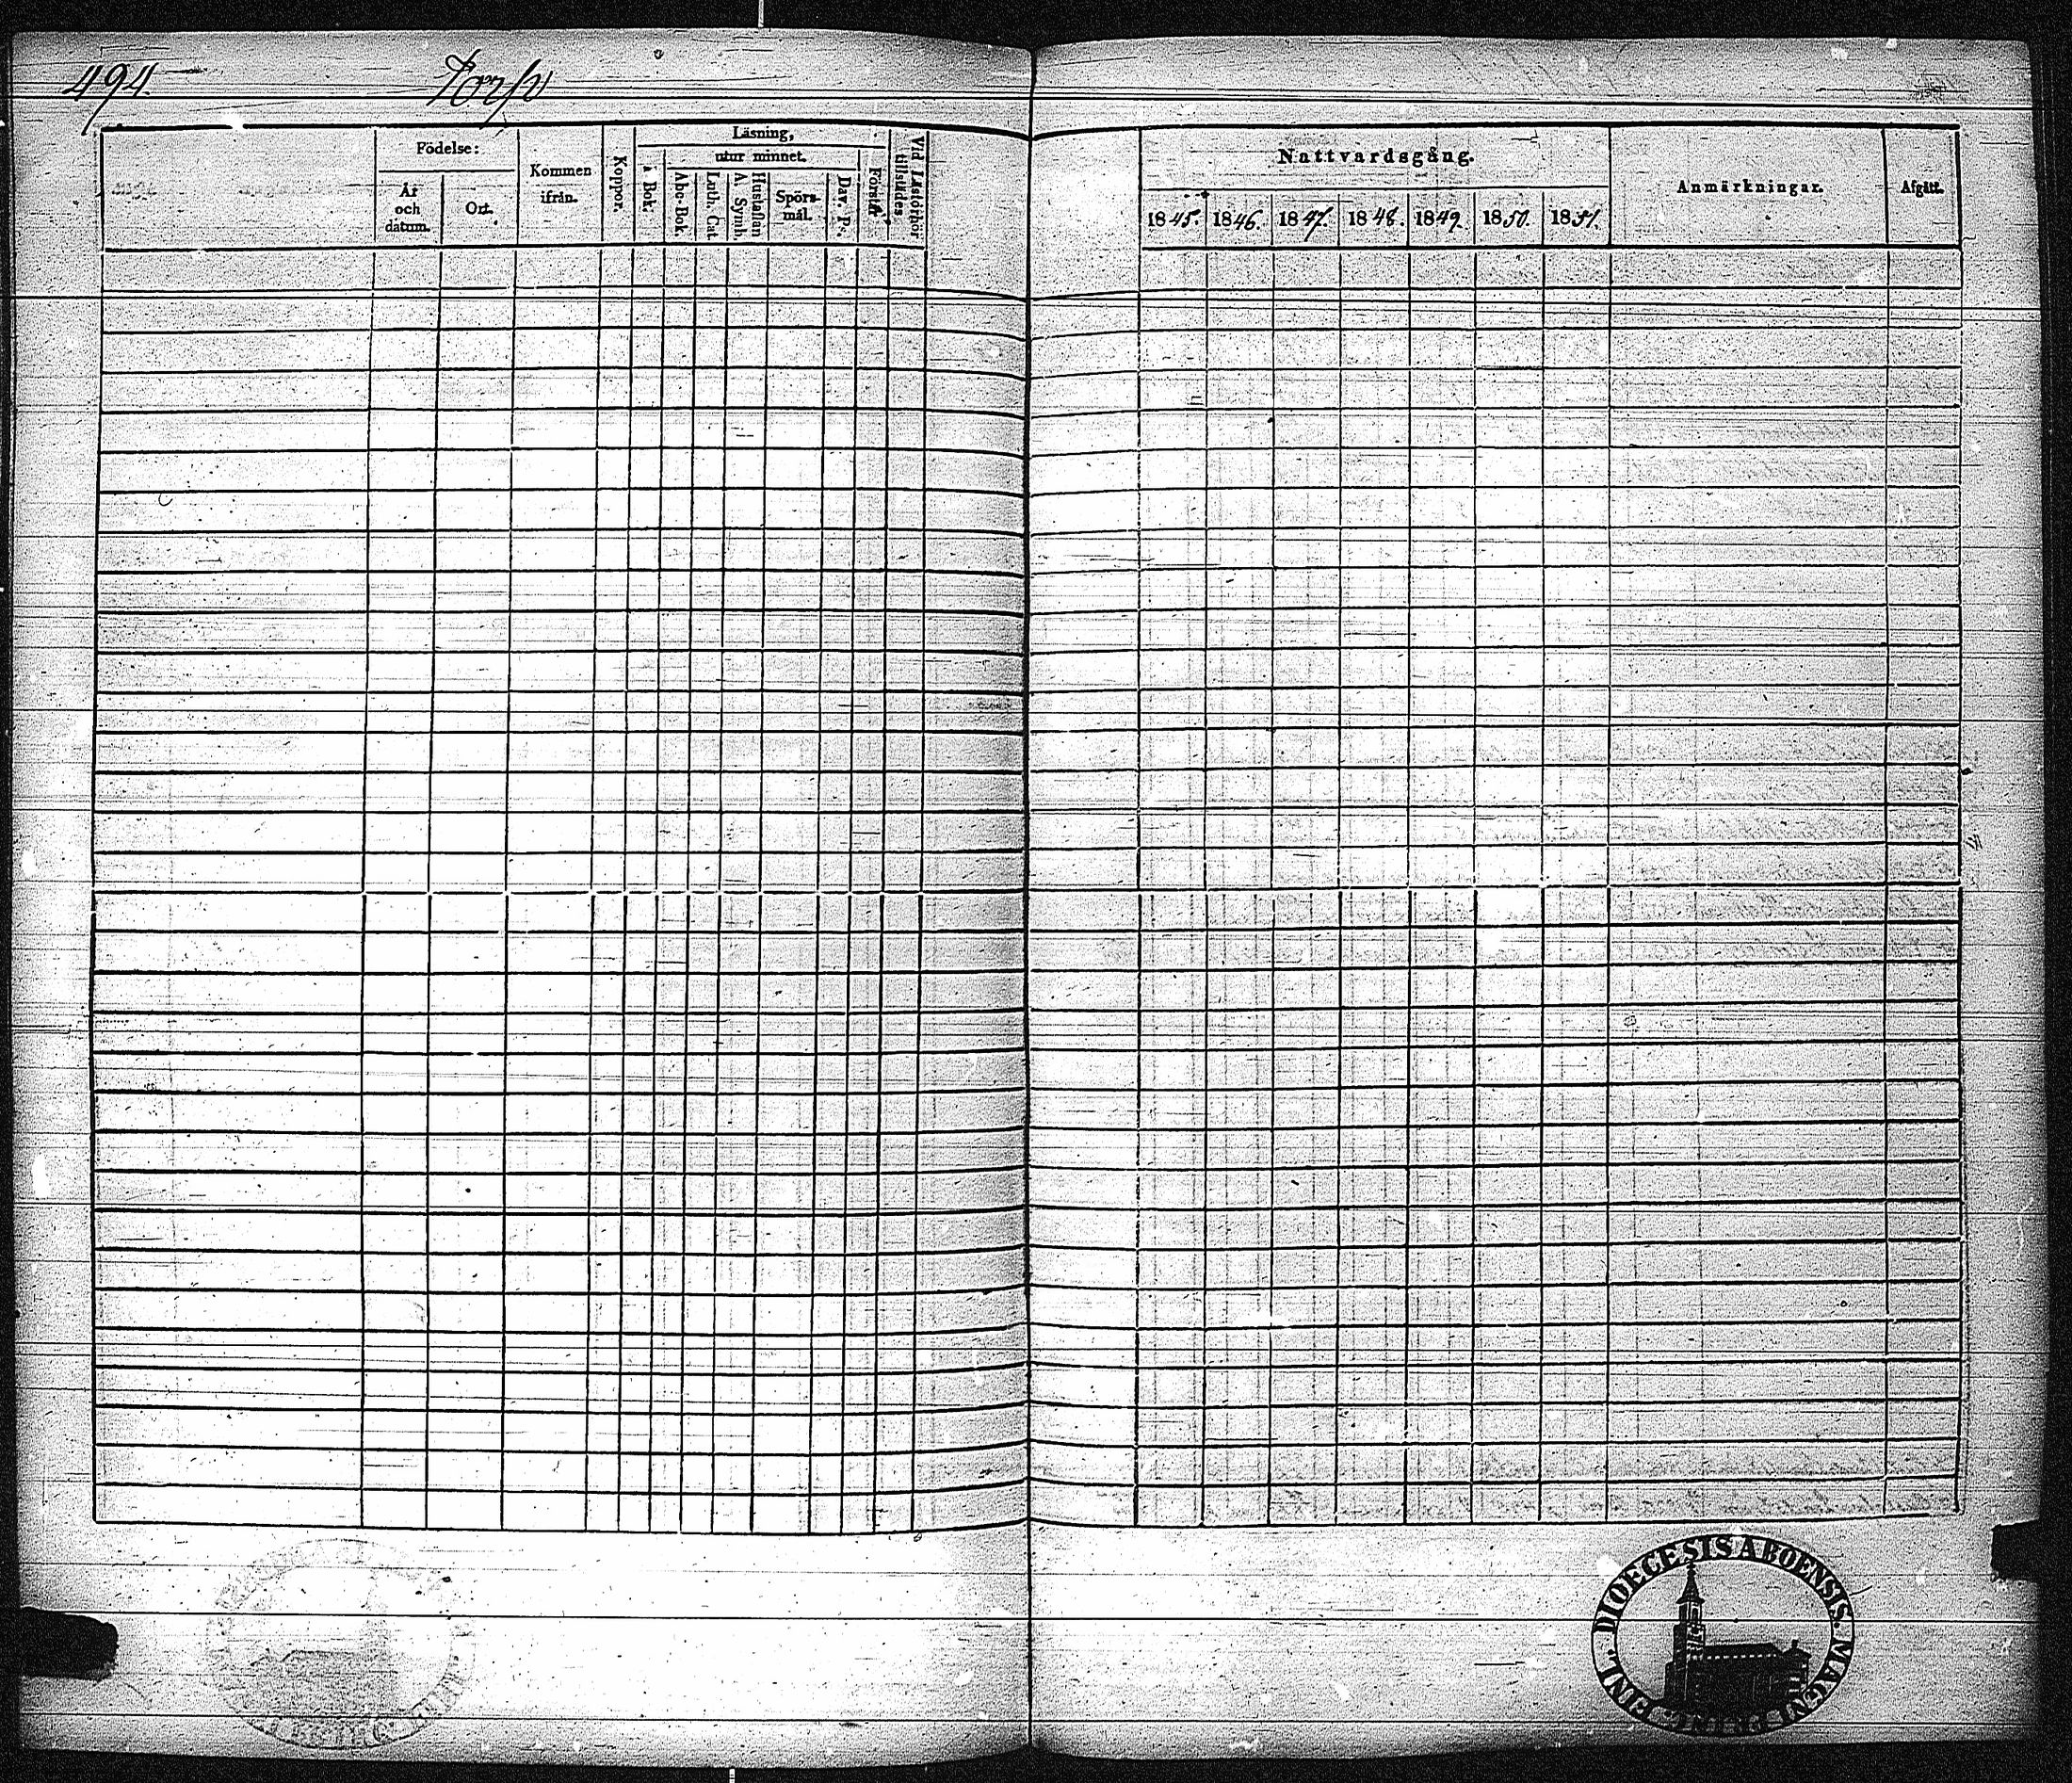 494. Torp
Födelse:
År och datum.
Ort.
Kommen ifrån.
Koppor.
Läsning,
i Bok.
utur minnet.
Abc-Bok.
Luth. Cat.
Hustaflan A. Symb.
Spörsmål.
Dav. Ps.
Förstår
Vid Läsförhör tillstädes
Nattvardsgång.
1845. 1846. 1847. 1848. 1849. 1850. 1851.
Anmärkningar.
Afgått.
DIOECESIS ABOENSIS. MAGNI PRINC. FINL.